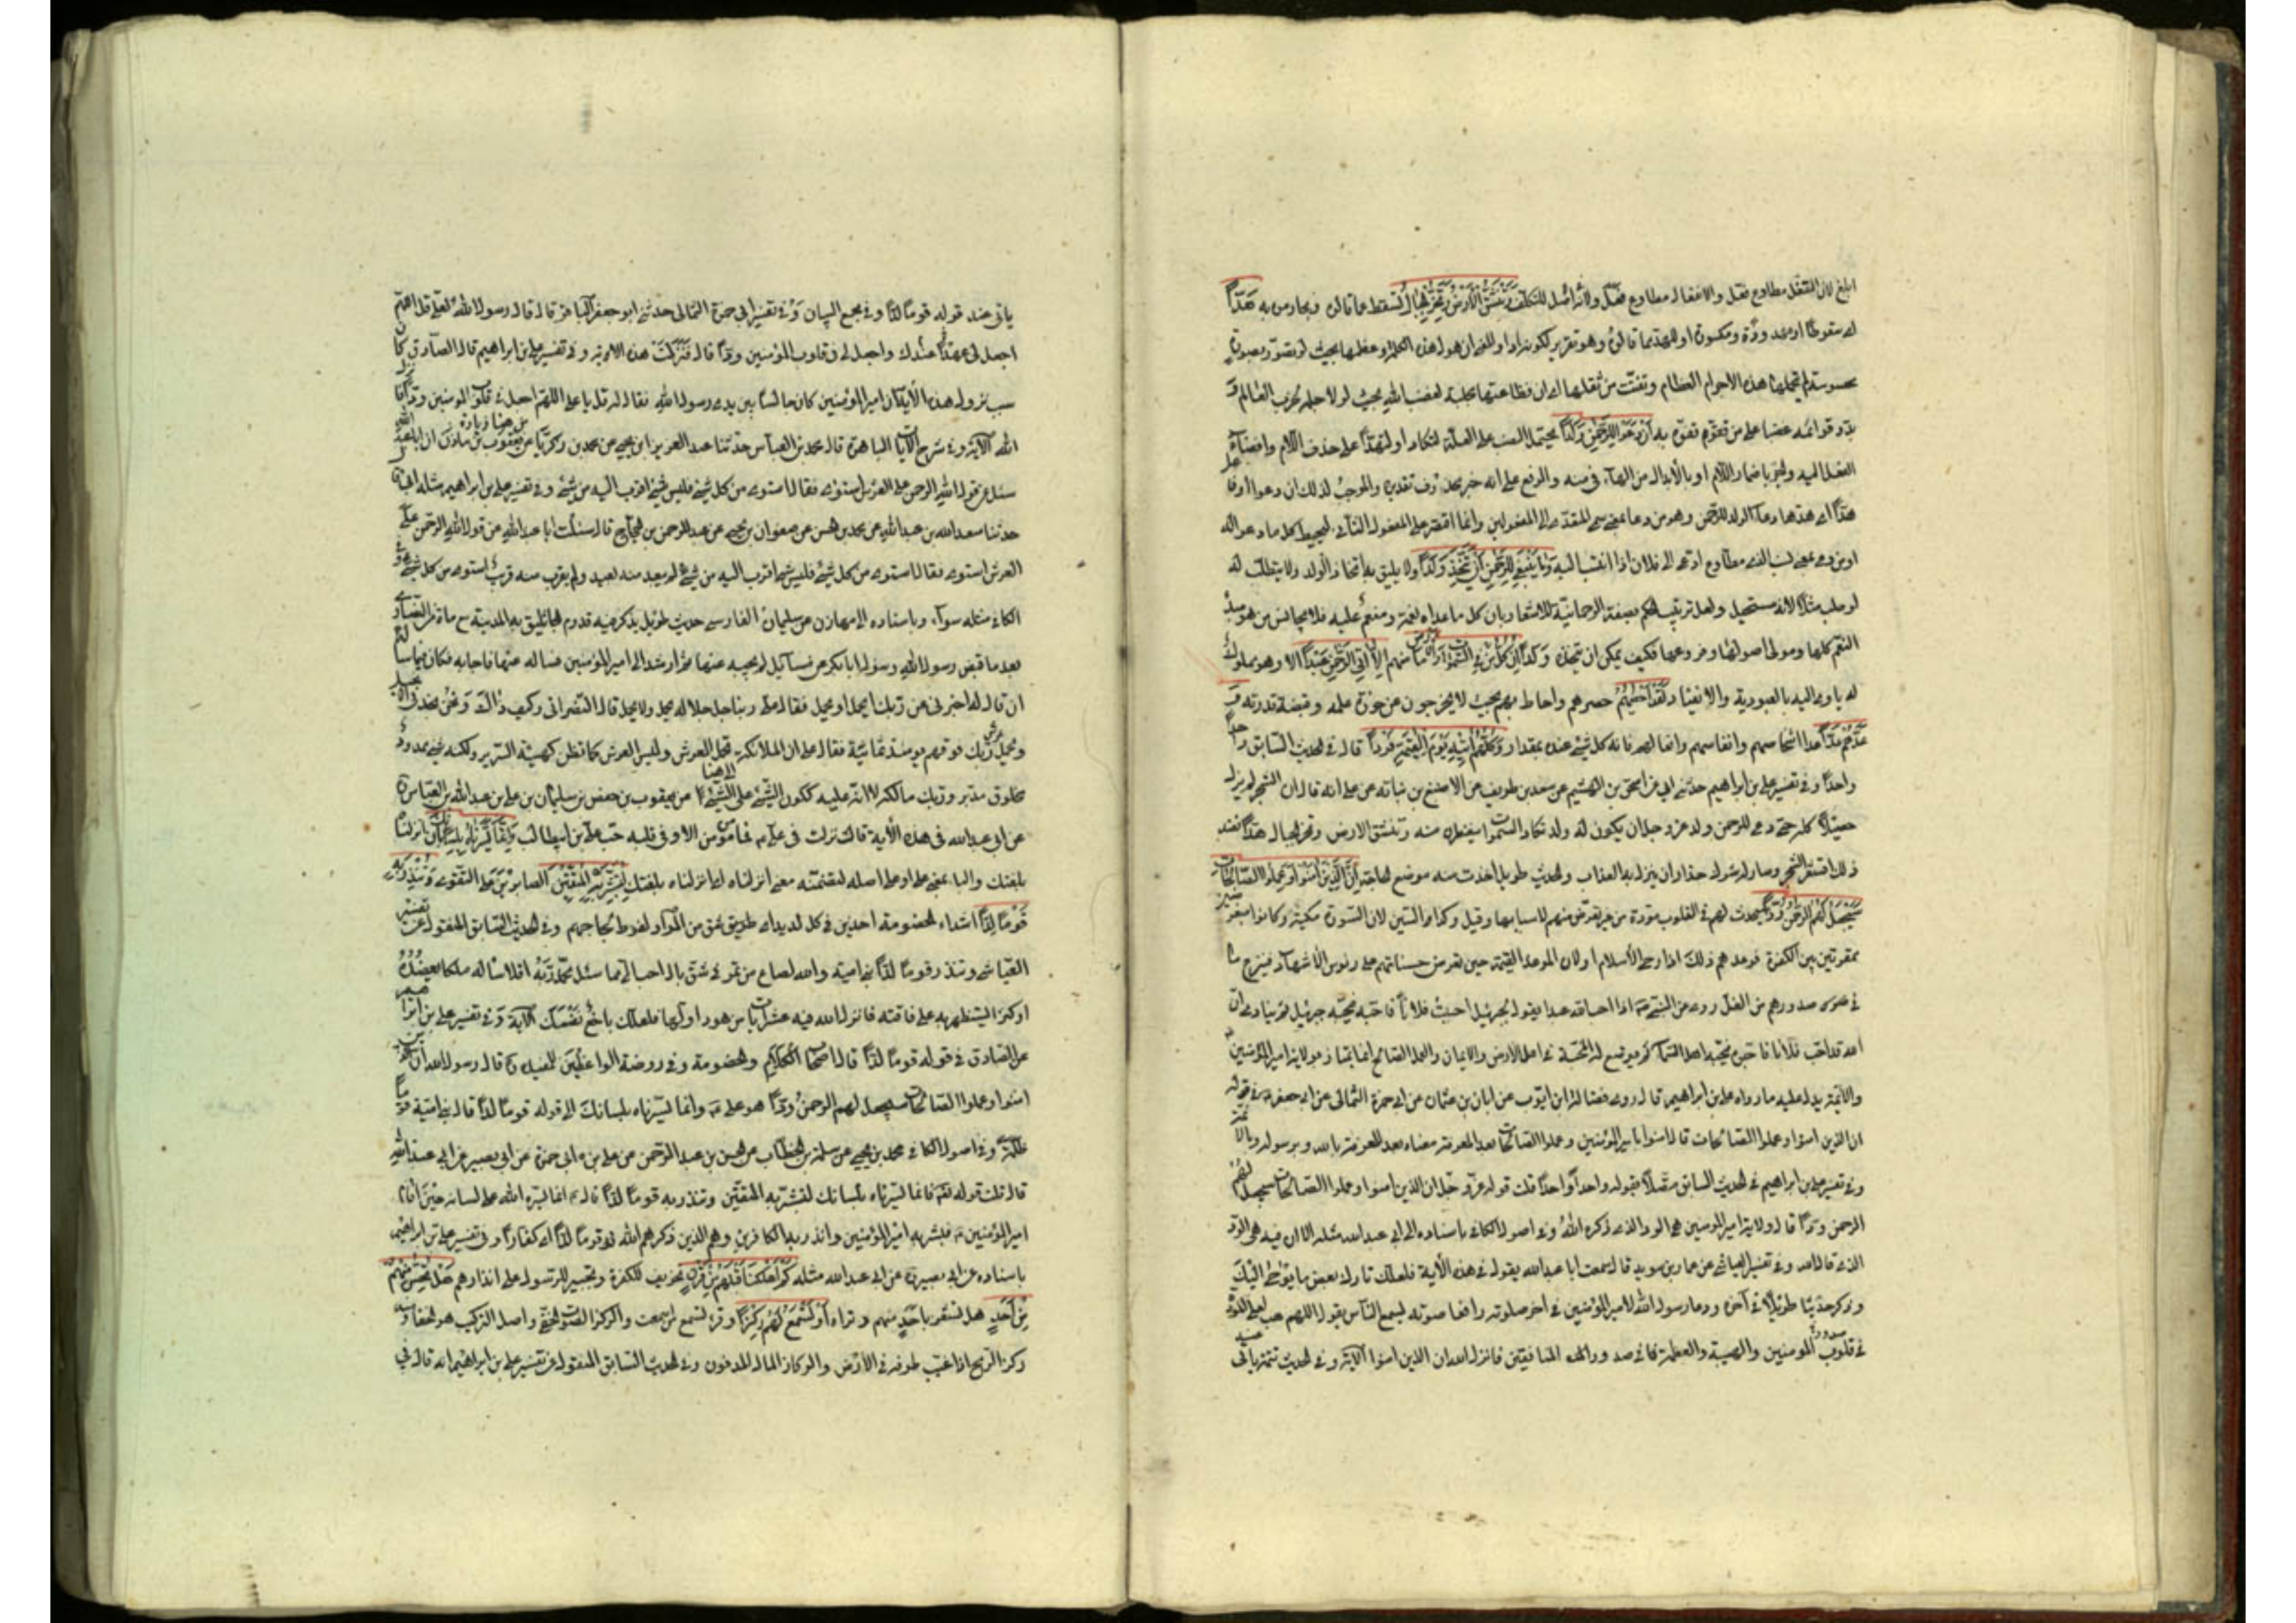 ابلغ لان التفعّل مطاوع فعّل والانفعال مطاوع فعل ولان اصل التفعل للتكلف وَتَنْشَقُّ الْاَرْضُ وَتَخِرُّ الْجِبَالُ هَدًّا
محسوسة لم تحملها هذه الاجرام العظام وتفتّت من ثقلها او ان فظاعتها مجلبة لغضب الله بحيث لولا حلمه لخرب العالم و
بدّد قوائمه غضبا على من تفوّه بها اَنْ دَعَوْا لِلرَّحْمٰنِ وَلَدًا يحتمل النصب على العلّة لتكاد او لهدّا على حذف اللام وافضاء
الفعل اليه والجر باضمار اللام او بالابدال من الهاء فى منه والرفع على انه خبر محذوف تقديره والموجب لذلك ان دعوا او فاعل
هدّا اى هدّها دعاء الولد للرحمن وهو من دعا بمعنى سمى المتعدّى الى المفعولين وانما اقتصر على المفعول الثانى ليحيط بكل ما دعى له
او من دعى بمعنى نسب الذى مطاوعه ادّعى الى فلان اذا انتسب اليه وَمَا يَنْبَغِى لِلرَّحْمٰنِ اَنْ يَتَّخِذَ وَلَدًا ولا يليق به اتخاذ الولد ولا يتطلّب له
لو طلب مثلًا لانه مستحيل ولعل ترتيب الحكم بصفة الرحمانيّة للاشعار بان كل ما عداه نعمة ومنعم عليه فلا يجانس من هو مبدأ
النعم كلها ومولى اصولها وفروعها فكيف يمكن ان يتخذه ولدا اِنْ كُلُّ مَنْ فِى السَّمٰوَاتِ وَالْاَرْضِ منهم اِلَّا اٰتِى الرَّحْمٰنِ عَبْدًا الا وهو مملوك
له ياوى اليه بالعبودية والانقياد لَقَدْ اَحْصٰيهُمْ حصرهم واحاط بهم بحيث لا يخرجون عن حوزة علمه وقبضة قدرته وَ
عَدَّهُمْ عَدًّا عد اشخاصهم وانفاسهم وافعالهم فانه كل شىء عنده بمقدار وَكُلُّهُمْ اٰتِيهِ يَوْمَ الْقِيٰمَةِ فَرْدًا قال فى الحديث السابق واحدا
واحدًا وفى تفسير على بن ابراهيم حدثنى ابى عن اسحق بن الهيثم عن سعد بن طريف عن الاصبغ بن نباته عن على انه قال ان الشجر لم يزل
حصيدًا كله حتى دعى للرحمن ولد عزّ وجل ان يكون له ولد تكاد السموات يتفطرن منه وتنشق الارض وتخر الجبال هدًّا فعند
ذلك اقشعرّ الشجر وصار له شوك حذار ان ينزل به العذاب والحديث طويل اخذت منه موضع الحاجة اِنَّ الَّذِينَ اٰمَنُوا وَعَمِلُوا الصَّالِحَاتِ
سَيَجْعَلُ لَهُمُ الرَّحْمٰنُ وُدًّا سيحدث لهم فى القلوب مودة من غير تعرّض منهم لاسبابها وقيل والسين لان السورة مكيّة وكانوا
ممقوتين بين الكفرة فوعدهم ذلك اذا دجا الاسلام او لان الموعد القيمة حين تعرض حسناتهم على رؤس الاشهاد فينزع ما
فى صدورهم من الغل روى عن النبى اذا احب الله عبدا يقول لجبرئيل احببت فلانًا فاحبّه فيحبّه جبرئيل ثم ينادى ان
الله قد احب فلانا فاحبوه فيحبّه اهل السماء ثم يوضع له المحبّة فى اهل الارض والايمان والعمل الصالح بولاية امير المؤمنين
والائمة يدل عليه ما رواه على بن ابراهيم قال روى فضالة بن ايّوب عن ابان بن عثمان عن ابى حمزة الثمالى عن ابى جعفر فى قوله
ان الذين امنوا وعملوا الصالحات قال امنوا بامير المؤمنين وعملوا الصالحات بعد المعرفة معناه بعد المعرفة بالله وبرسوله والائمة
وفى تفسير على بن ابراهيم فى الحديث السابق متصلًا بقوله واحدًا واحدًا قلت قوله عزّ وجل ان الذين امنوا وعملوا الصالحات سيجعل لهم
الرحمن ودًّا قال ولاية امير المؤمنين هى الود الذى ذكره الله وفى اصول الكافى باسناده الى ابى عبدالله مثله الا ان فيه هى الود
الذى قال الله وفى تفسير العياشى عن عمار بن سويد قال سمعت ابا عبدالله يقول فى هذه الآية فلعلك تارك بعض ما يوحى اليك
وذكر حديثا طويلًا فى آخره ودعا رسول الله لامير المؤمنين فى اخر صلوته رافعا صوته يسمع الناس يقول اللهم هب لعلى المودّة
فى قلوب المؤمنين والهيبة والعظمة فى صدور المنافقين فانزل الله ان الذين امنوا الآية وفى الحديث تتمة ياتى
ياتى عند قوله قومًا لدًّا وفى مجمع البيان وفى تفسير ابى حمزة الثمالى حدثنى ابو جعفر الباقر قال قال رسول الله لعلى قل اللهم
اجعل لى عهدًا عندك واجعل لى فى قلوب المؤمنين ودًّا قال فنزلت هذه الآية وفى تفسير على بن ابراهيم قال الصادق كان
سبب نزول هذه الآية ان امير المؤمنين كان جالسًا بين يدى رسول الله فقال له قل يا على اللهم اجعل فى قلوب المؤمنين ودًّا فانزل
الله الآية وفى شرح الآيات الباهرة قال محمد بن العباس حدثنا عبد العزيز بن يحيى عن محمد بن زكريّا عن يعقوب بن
سئل عن قول الله الرحمن على العرش استوى فقال استوى من كل شىء فليس شىء اقرب اليه من شىء وفى تفسير على بن ابراهيم مثله
حدثنا سعد الله بن عبدالله عن محمد بن الحسن عن صفوان بن يحيى عن عبد الرحمن بن الحجاج قال سئلت ابا عبدالله عن قول الله الرحمن على
العرش استوى فقال استوى من كل شىء فليس شىء اقرب اليه من شىء لم يبعد منه بعيد ولم يقرب منه قريب استوى من كل شىء وفى
الكافى مثله سواء وباسناده الى سلمان الفارسى حديث طويل يذكر فيه قدوم الجاثليق المدينة مع ماة من النصارى
بعد ما قبض رسول الله وسؤاله ابا بكر عن مسائل لم يجبه عنها ثم ارشد الى امير المؤمنين فسأله عنها فاجابه فكان فيما سأله
ان قال له اخبرنى عن ربك ايحمل او يحمل فقال على ربنا جل جلاله يحمل ولا يحمل قال النصرانى وكيف ذلك ونحن نجد فى الانجيل
ويحمل عرش ربك فوقهم يومئذ ثمانية فقال على ان الملائكة تحمل العرش وليس العرش كما تظن كهيئة السرير ولكنه شىء محدود
مخلوق مدبر وربك مالكه لا انه عليه ككون الشىء على الشىء عن يعقوب بن جعفر بن سليمان بن على بن عبدالله بن العباس
عن ابى عبدالله فى هذه الآية قال نزلت فى على فما من مؤمن الا وفى قلبه حب على بن ابيطالب فَاِنَّمَا يَسَّرْنَاهُ بِلِسَانِكَ بان انزلناه
بلغتك والباء بمعنى على او على اصله لتضمنه معنى انزلناه اى انزلناه بلغتك لِتُبَشِّرَ بِهِ الْمُتَّقِينَ الصائرين الى التقوى وَتُنْذِرَ بِهِ
قَوْمًا لُدًّا اشداء الخصومة اخذين فى كل لديد اى طريق شق من المراء لفرط لجاجهم وفى الحديث السابق المنقول عن تفسير
العياشى وتنذر قوما لدًّا بنى امية والله لصاع من تمر فى شن بال احب الىّ مما سئل محمد ربه افلا سأله ملكا يعضده
او كنزا يستظهر به على فاقته فانزل الله فيه عشر ايات من هود اولها فلعلك باخع نفسك الآية وفى تفسير على بن ابراهيم
عن الصادق فى قوله قومًا لدًّا قال اصحاب الكلام والخصومة وفى روضة الواعظين للمفيد قال رسول الله ان الذين
امنوا وعملوا الصالحات سيجعل لهم الرحمن ودًّا هو على وانما يسّرناه بلسانك الى قوله قومًا لدًّا قال بنى امية قوما
ظلمة وفى اصول الكافى محمد بن يحيى عن سلمة بن الخطاب عن الحسن بن عبد الرحمن عن على بن ابى حمزة عن ابى بصير عن ابى عبدالله
قال قلت قوله فانما يسّرناه بلسانك لتبشّر به المتقين وتنذر به قومًا لدًّا قال انما يسّره الله على لسانه حين اقام
امير المؤمنين فبشّر به المؤمنين وانذر به الكافرين وهم الذين ذكرهم الله قومًا لدًّا اى كفارًا وفى تفسير على بن ابراهيم
باسناده عن ابى بصير عن ابى عبدالله مثله كَمْ اَهْلَكْنَا قَبْلَهُمْ مِنْ قَرْنٍ تخويف للكفرة وتجسير للرسول على انذارهم هَلْ تُحِسُّ مِنْهُمْ
مِنْ اَحَدٍ هل تشعر باحد منهم وتراه اَوْ تَسْمَعُ لَهُمْ رِكْزًا وقرئ تسمع من اسمعت والركز الصوت الخفى واصل التركيب هو الخفاء ومنه
ركز الرمح اذا غيّب طرفه فى الارض والركاز المال المدفون وفى الحديث السابق المنقول عن تفسير على بن ابراهيم انه قال فى